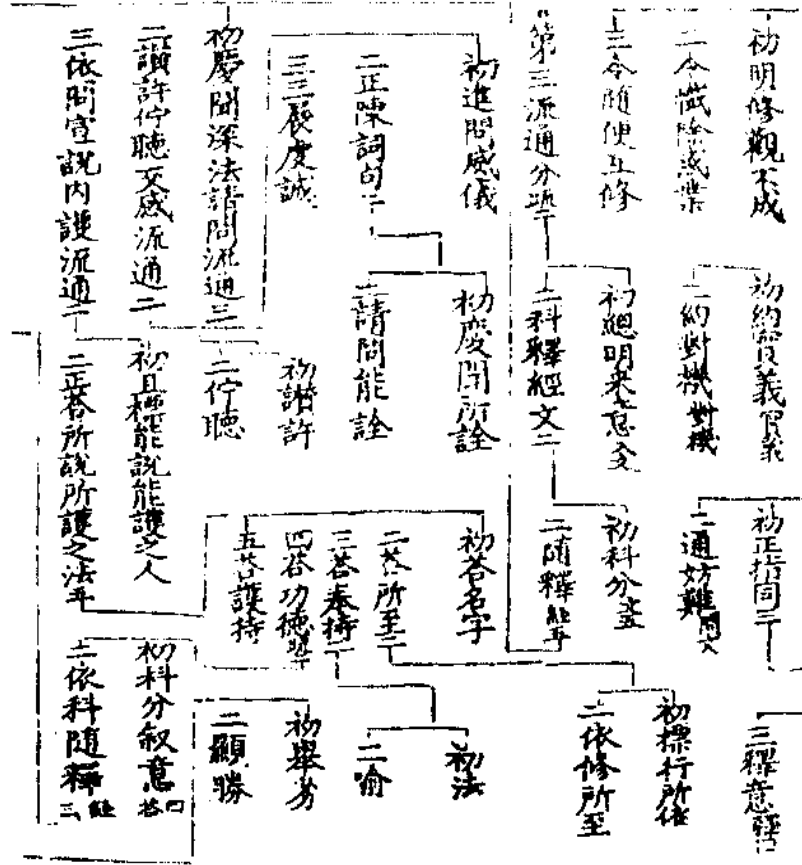 初明修觀不成
二令懺除惑業
三令隨便互修
第三流通分
初進問威儀
二正陳詞句二
三三展虔誠
初慶聞深法請問流通三
二讚許佇聽交感流通二
三依問宣說內護流通二
初約
二約對機
初總明來意
二科釋經文二
初慶聞所詮
二請問能詮
初讚許
二佇聽
初且標能說能護之人
二正答所說所護之法五
初正指同三
二通妨難
初科分
二隨釋
初答名字
二答所至二
三答奉持二
四答功德
五答護持
三釋意
初標行所依
二依修所至
初法
二喻
初舉劣
二顯勝
初科分敘意
二依科隨釋